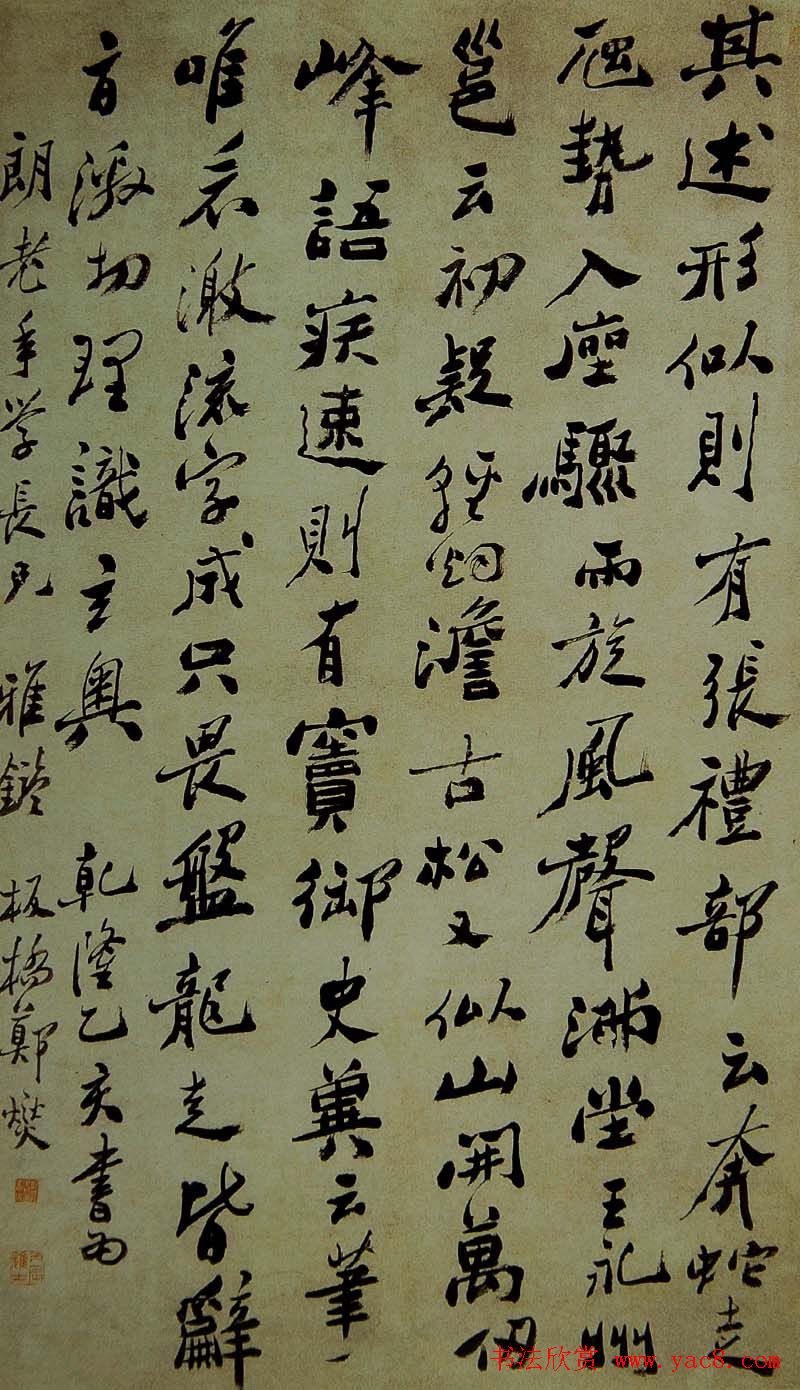 其述形似則有張禮部云奔蛇走
虺勢入座驟雨旋風聲滿堂王永州
邕云初疑輕烟澹古松又似山開萬仞
峰語疾速則有竇御史冀云筆
唯看激流字成只畏盤龍走皆辭
旨激切理識玄奧 乾隆乙亥書為
朗老年學長兄 雅鑒 板橋鄭燮
书法欣赏 www.yac8.com